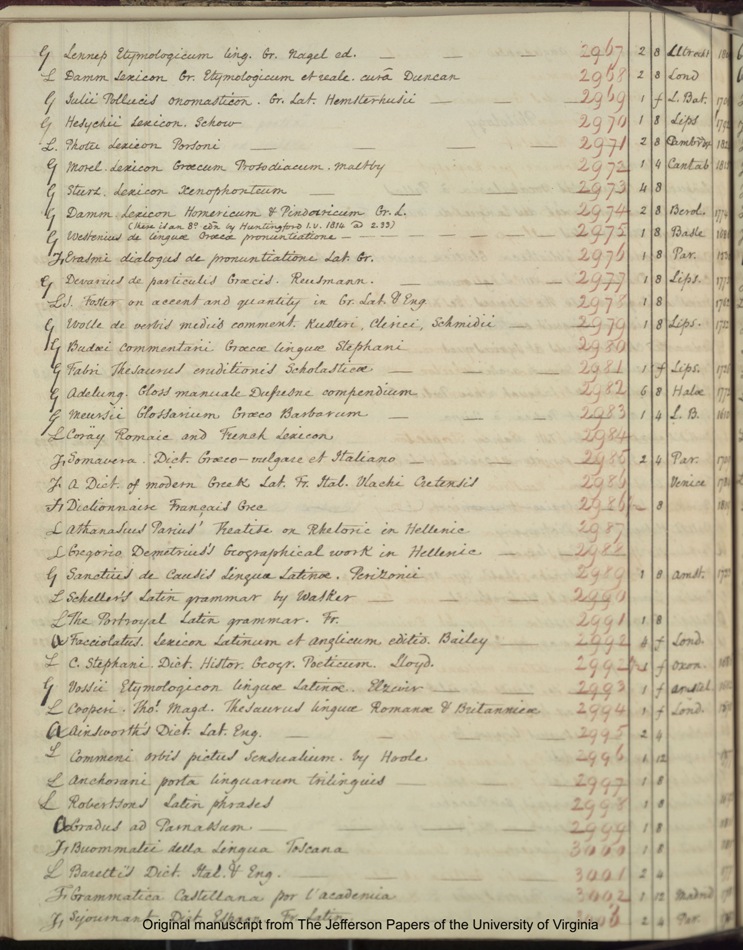 G Lennep Etymologicum ling. Gr. Nagel ed. — — — — 2967 2 8 Utrecht
L Damm Lexicon Gr. Etymologicum et reale. cura Duncan 2968 2 8 Lond
G Julii Pollucis onomasticon. Gr. Lat. Hemsterhusii — — 2969 1 f L. Bat.
G Hesychii Lexicon. Schow — — — 2970 1 8 Lips
L. Photii Lexicon Porsoni — — — 2971 2 8 Cambr
G Morel. Lexicon Græcum Prosodiacum. Maltby 2972 1 4 Cantab
G Sturz. Lexicon Xenophonteum — — — 2973 4 8
G Damm. Lexicon Homericum & Pindaricum Gr. L. 2974 2 8 Berol.
(there is an 8º edn by Huntingford 1.v. 1814 @ 2.33)
G Westenius de linguæ Græcæ pronuntiatione — — — 2975 1 8 Basle
Fr Erasmi dialogus de pronuntiatione Lat. Gr. 2976 1 8 Par.
G Devarius de particulis Græcis. Reusmann. 2977 1 8 Lips.
L J. Foster on accent and quantity in Gr. Lat. & Eng 2978 1 8
G Wolle de verbis mediis comment. Kusteri, Clerici, Schmidii — 2979 1 8 Lips.
G Budæi commentarii Græcæ linguæ Stephani 2980
G Fabri Thesaurus eruditionis Scholasticæ — — 2981 1 f Lips.
G Adelung. Gloss manuale Dufresne compendium 2982 6 8 Halæ
G Meursii Glossarium Græco Barbarum — — — 2983 1 4 L. B.
L Coräy Romaic and French Lexicon 2984
Fr Somavera. Dict. Græco-vulgare et Italiano — — 2985 2 4 Par.
Fr A Dict. of modern Greek Lat. Fr. Ital. Vlachi Cretensis 2986 Venice
Fr Dictionnaire Français Grec 2986 8
L Athanasius Parius' Treatise on Rhetoric in Hellenic 2987
L Gregorio Demetrius's Geographical work in Hellenic — — 2988
G Sanctius de Causis Linguæ Latinæ. Perizonii 2989 1 8 Amst.
L Scheller's Latin grammar by Walker — — — 2990
L The Portroyal Latin grammar. Fr. 2991 1 8
A Facciolatus. Lexicon Latinum et Anglicum editio. Bailey — 2992 4 f Lond.
L C. Stephani. Dict. Histor. Geogr. Poeticum. Lloyd. 2992 1 f Oxon.
G Vossii Etymologicon linguæ Latinæ. Elzevir — — 2993 1 f Amstel
L Cooperi. Thos. Magd. Thesaurus linguæ Romanæ & Britannicæ 2994 1 f Lond.
A Ainsworth's Dict. Lat. Eng. — — — 2995 2 4
L Commeni orbis pictus sensualium. by Hoole 2996 1 12
L Anchorani porta linguarum trilinguis — — — 2997 1 8
L Robertsons Latin phrases 2998 1 8
A Gradus ad Parnassum — — — — 2999 1 8
Fr Buommatei della Lingua Toscana 3000 1 8
L Baretti's Dict. Ital. & Eng. — — — — 3001 2 4
Fr Grammatica Castellana por l'academia 3002 1 12 Madrid
Fr Sejournant Dict. Espagn. Fr. Latin 2 4 Par.
Original manuscript from The Jefferson Papers of the University of Virginia